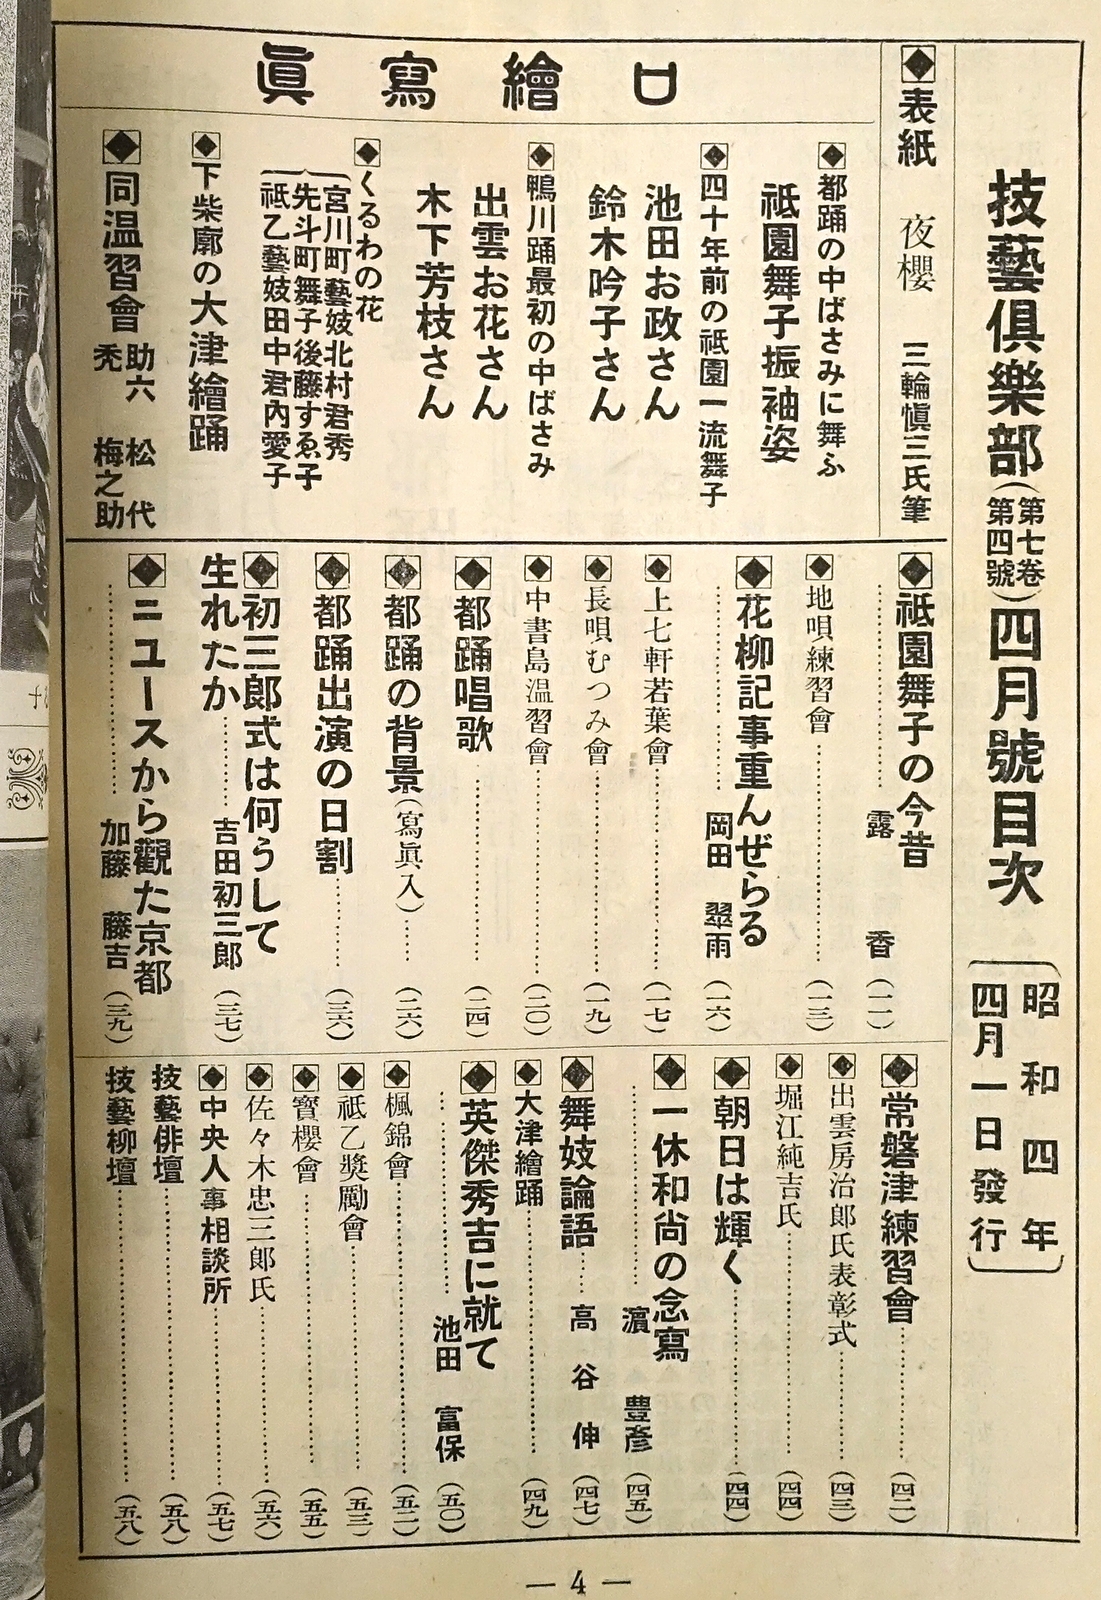 技藝倶樂部(第七卷第四號)四月號目次
昭和四年
四月一日發行
◆表紙 夜櫻 三輪愼三氏筆
口繪寫眞
◆都踊の中ばさみに舞ふ
祗園舞子振袖姿
◆四十年前の祗園一流舞子
池田お政さん
鈴木吟子さん
◆鴨川踊最初の中ばさみ
出雲お花さん
木下芳枝さん
◆くるわの花
宮川町藝妓北村君秀
先斗町舞子後藤すゑ子
祗乙藝妓田中君內愛子
◆下柴廓の大津繪踊
◆同溫習會 助六 松代
禿 梅之助
◆祗園舞子の今昔
露香(一一)
◆地唄練習會(一三)
◆花柳記事重んぜらる
岡田翠雨(一六)
◆上七軒若葉會(一七)
◆長唄むつみ會(一九)
◆中書島溫習會(二〇)
◆都踊唱歌(二四)
◆都踊の背景(寫眞入)(二六)
◆都踊出演の日割(三六)
◆初三郎式は何うして
生れたか 吉田初三郎(三七)
◆ニユースから觀た京都
加藤藤吉(三九)
◆常磐津練習會(四二)
◆出雲房治郎氏表彰式(四三)
◆堀江純吉氏(四四)
◆朝日は輝く(四四)
◆一休和尚の念寫
濵豊彥(四五)
◆舞妓論語 高谷伸(四七)
◆大津繪踊(四九)
◆英傑秀吉に就て
池田富保(五〇)
◆楓錦會(五二)
◆祗乙奬勵會(五三)
◆寶櫻會(五五)
◆佐々木忠三郎氏(五六)
◆中央人事相談所(五七)
技藝俳壇(五八)
技藝柳壇(五八)
— 4 —